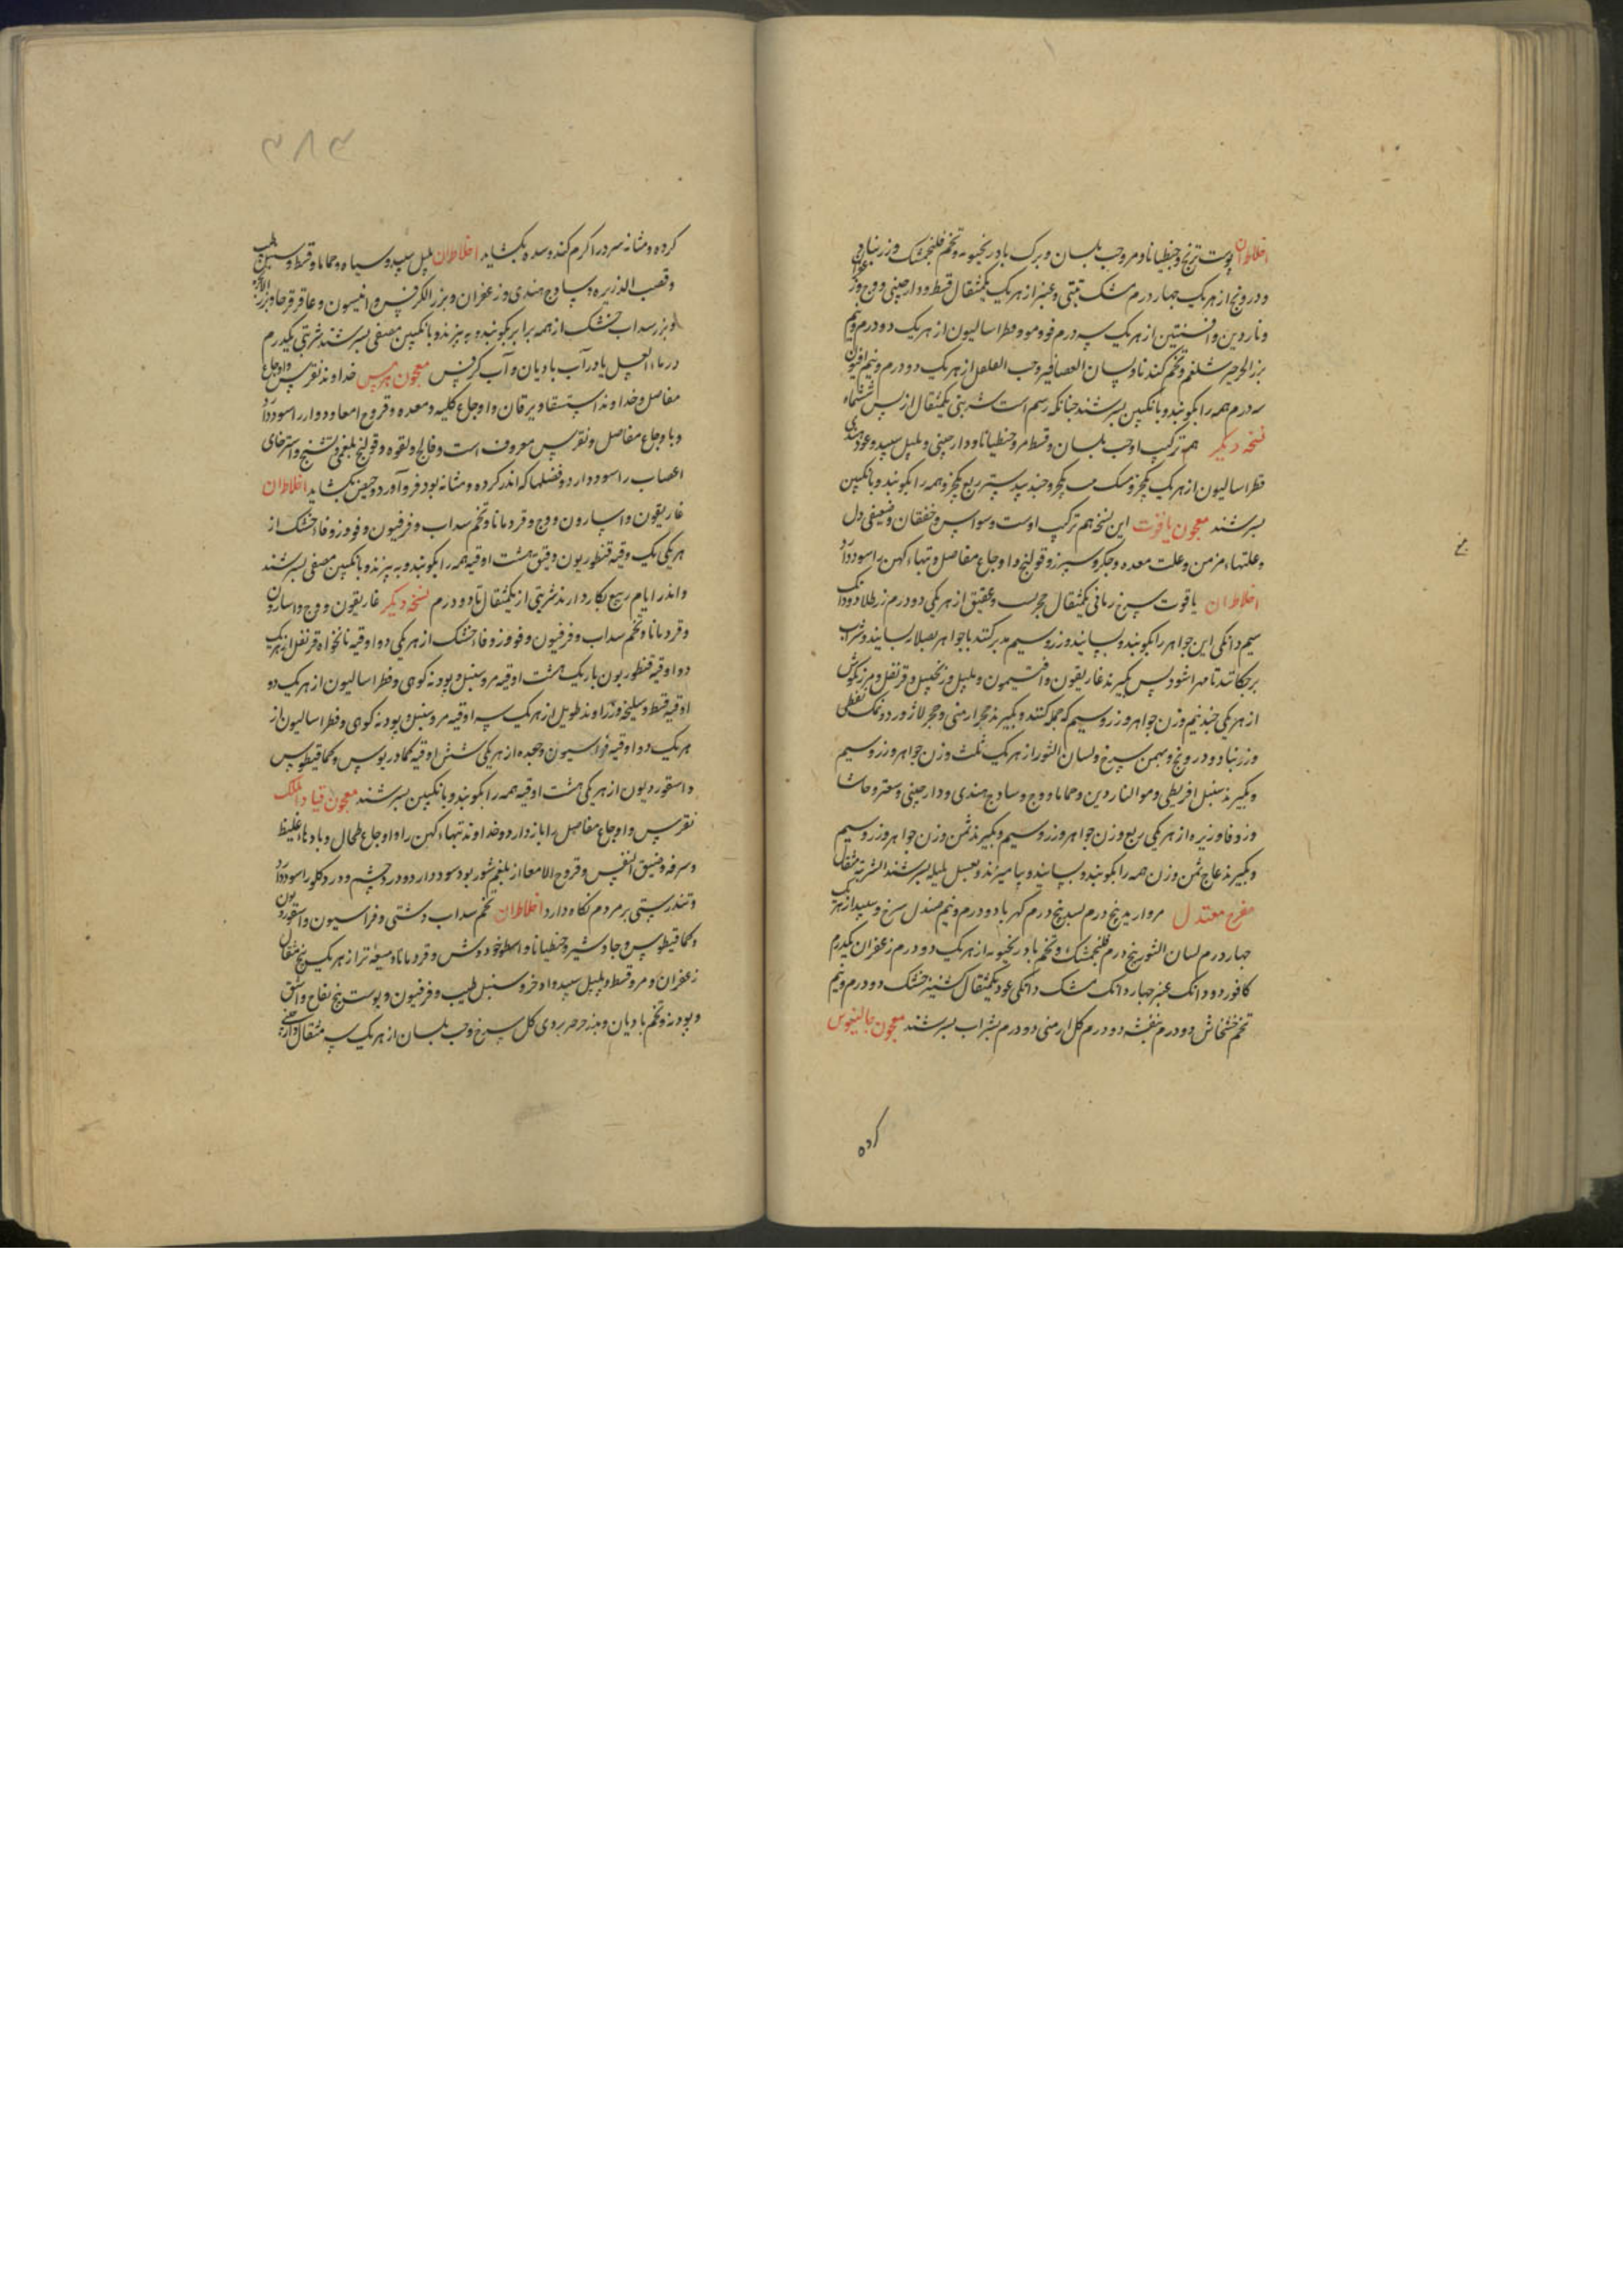 اخلاط آن پوست ترنج و جنطیانا و مر و حب بلسان و برک بادرنجبویه و تخم فلنجمشک و زرنباد
و درونج از هر یک چهار درم مشک تبتی و عنبر از هر یک یکمثقال قسط و دارچینی و وج و
و ناردین و افسنتین از هر یک سه درم فو و مو و فطراسالیون از هر یک دو درم و نیم
بزر الجرجیر شلغم و تخم کندنا و لسان العصافیر و حب الفلفل از هر یک دو درم و نیم افیون
سه درم همه را بکوبند و بانکبین بسرشند چنانکه رسم است شربتی یکمثقال از پس ششماه
نسخه دیکر هم ترکیب اوست حب بلسان و قسط و مر و جنطیانا و دارچینی و پلپل سپید و عود هندی
فطراسالیون از هر یک یکجزو مشک یکجزو جندبیدستر ربع یکجزو همه را بکوبند و بانکبین
بسرشند معجون یاقوت این نسخه هم ترکیب اوست وسواس و خفقان و ضعیفی دل
و علتهاء مزمن و علت معده و جکر و سپرز و قولنج و اوجاع مفاصل و تبهاء کهن را سود دارد
اخلاط آن یاقوت سرخ رمانی یکمثقال حجر یشب و عقیق از هر یکی دو درم زر طلا دو دانک
سیم دانکی این جواهر را بکوبند و بسایند و زر و سیم مدبر کنند با جواهر بصلایه بسایند و شراب
برچکانند تا مهرا شود پس بکیرند غاریقون و افتیمون و پلپل و زنجبیل و قرنفل و مرزنکوش
از هر یکی چند نیم وزن جواهر و زر و سیم که جمله کنند و بکیرند حجر ارمنی و حجر لاژورد و نمک نفطی
و زرنباد و درونج و بهمن سرخ و لسان الثور از هر یک ثلث وزن جواهر و زر و سیم
و بکیرند سنبل اقریطی و مو و النار دین و حماما و وج و ساذج هندی و دارچینی و سعتر و حاشا
و زوفا و زیره از هر یکی ربع وزن جواهر و زر و سیم و بکیرند ثمن وزن جواهر و زر و سیم
و بکیرند عاج ثمن وزن همه را بکوبند و بسایند و بیامیزند و بعسل بلیله بسرشند الشربة مثقال
مفرح معتدل مروارید پنج درم بسد پنج درم کهربا دو درم و نیم صندل سرخ و سپید از هر یک
چهار درم لسان الثور پنج درم فلنجمشک و تخم بادرنجبویه از هر یک دو درم زعفران یکدرم
کافور دو دانک عنبر چهار دانک مشک دانکی عود یکمثقال کشنیز خشک دو درم و نیم
تخم خشخاش دو درم بنفشه دو درم کل ارمنی دو درم بشراب بسرشند معجون جالینوس
کرده
۳۸۳
کرده و مثانه سرد را کرم کند و سده بکشاید اخلاط آن پلپل سپید و سیاه و حماما و قسط و سنبل طیب
و قصب الذریره و ساذج هندی و زعفران و بزر الکرفس و انیسون و عاقرقرحا و بزر
و بزر سداب خشک از همه برابر بکوبند و به بیزند و بانکبین مصفی بسرشند شربتی یکدرم
در ماء العسل یا در آب بادیان و آب کرفس معجون هرمس خداوند نقرس و اوجاع
مفاصل و خداوند استسقا و یرقان و اوجاع کلیه و معده و قروح امعا و دوار را سود دارد
و با وجاع مفاصل و نقرس معروف است و فالج و لقوه و قولنج بلغمی و تشنج و استرخای
اعصاب را سود دارد و فضلها که اندر کرده و مثانه بود فرو آورد و حیض بکشاید اخلاط آن
غاریقون و اسارون و وج و قردمانا و تخم سداب و فرفیون و فو و زوفاء خشک از
هر یکی یک وقیه قنطوریون دقیق هشت اوقیه همه را بکوبند و به بیزند و بانکبین مصفی بسرشند
و اندر ایام ربیع بکار دارند شربتی از یکمثقال تا دو درم نسخه دیکر غاریقون و وج و اسارون
و قردمانا و تخم سداب و فرفیون و فو و زوفاء خشک از هر یکی دو اوقیه نانخواه قرنفل از هر یک
دو اوقیه قنطوریون باریک هشت اوقیه مر و سنبل و پودنه کوهی و فطراسالیون از هر یک دو
اوقیه قسط و سلیخه و زراوند طویل از هر یک سه اوقیه مر و سنبل و پودنه کوهی و فطراسالیون از
هر یک دو اوقیه فراسیون و جعده از هر یکی شش اوقیه کمادریوس و کمافیطوس
و اسقوردیون از هر یکی هشت اوقیه همه را بکوبند و بانکبین بسرشند معجون قباد الملک
نقرس و اوجاع مفاصل را باز دارد و خداوند تبهاء کهن را و اوجاع طحال و بادهاء غلیظ
و سرفه و ضیق النفس و قروح الامعا از بلغم شور بود سود دارد و درد چشم و درد کلو را سود دارد
و تندرستی بر مردم نکاه دارد اخلاط آن تخم سداب دشتی و فراسیون و اسقوردیون
و کمافیطوس و جاوشیر و جنطیانا و اسطوخودوس و قردمانا و میعه تر از هر یک پنج مثقال
زعفران و مر و قسط و پلپل سپید و اذخر و سنبل طیب و فرفیون و پوست بیخ لفاح و اشق
و پودنه و تخم بادیان و کل سرخ و حب بلسان از هر یک سه مثقال دارچینی